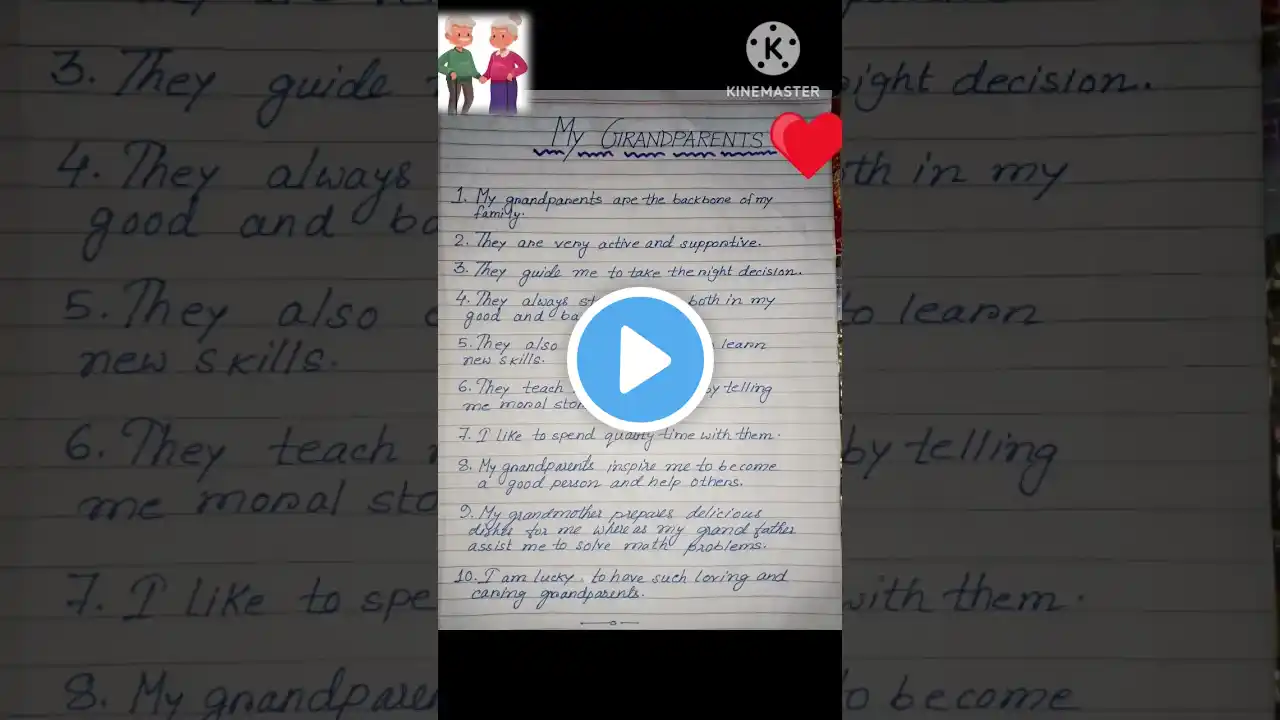 K
KINEMASTER
My GRANDPARENTS
1. My grandparents are the backbone of my
family.
2. They are very active and supportive.
3. They guide me to take the right decision.
4. They always both in my
good and
5. They also learn
new skills.
6. They teach by telling
me moral
7. I like to spend quality time with them.
8. My grandparents inspire me to become
a good person and help others.
9. My grandmother prepares delicious
dishes for me where as my grand father
assist me to solve math problems.
10. I am lucky to have such loving and
caring grandparents.
3. They guide
4. They always
good and
5. They also
new skills.
6. They teach
me moral
7. I like to
8. My
decision.
in my
to learn
by telling
with them.
become